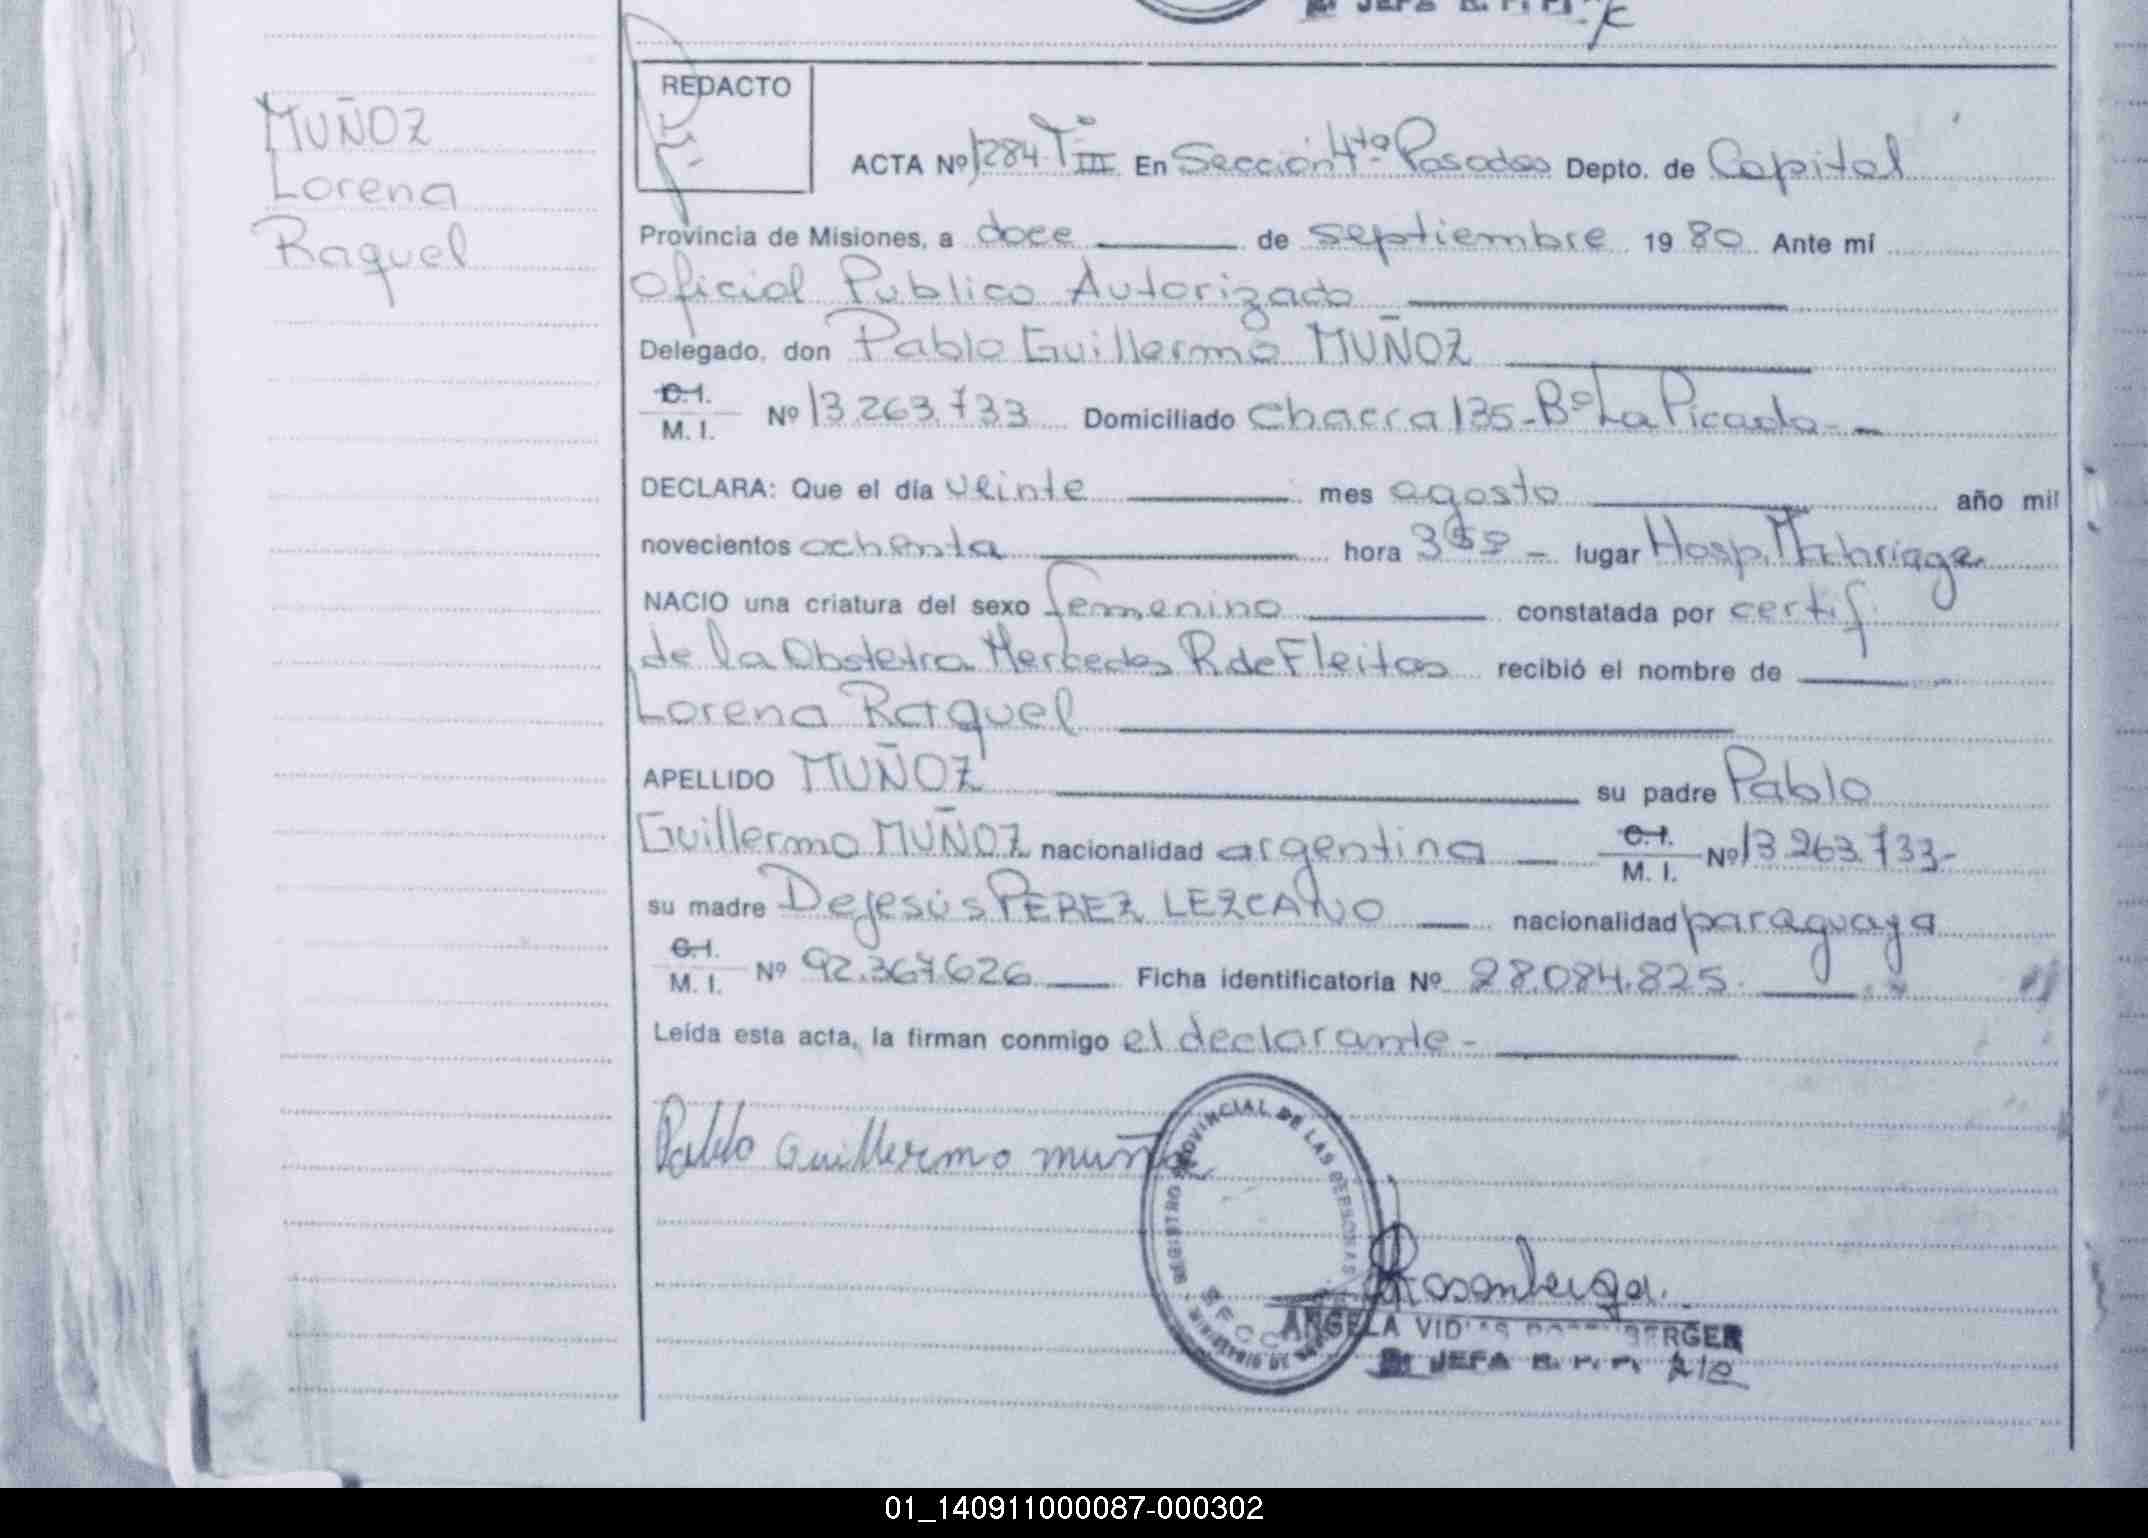 JEFA R. P. P.
MUÑOZ
Lorena
Raquel
REDACTO
ACTA Nº 1284 Tº III En Sección 4ta Posadas Depto. de Capital
Provincia de Misiones, a doce de septiembre 1980 Ante mí
Oficial Publico Autorizado
Delegado, don Pablo Guillermo MUÑOZ
C.I.
M. I. Nº 13.263.733 Domiciliado Chacra 135-Bº La Picada-
DECLARA: Que el día veinte mes agosto año mil
novecientos ochenta hora lugar Hosp.
NACIO una criatura del sexo femenino constatada por certif.
de la Obstetra Mercedes R de Fleitas recibió el nombre de
Lorena Raquel
APELLIDO MUÑOZ su padre Pablo
Guillermo MUÑOZ nacionalidad argentina C.I. M. I. Nº 13.263.733-
su madre Dejesús PEREZ LEZCANO nacionalidad paraguaya
C.I.
M. I. Nº 92.367.626 Ficha identificatoria Nº 28.084.825.
Leída esta acta, la firman conmigo el declarante-
Pablo Guillermo muñoz
REGISTRO PROVINCIAL DE LAS PERSONAS
MINISTERIO DE
ANGELA
JEFA
01_140911000087-000302